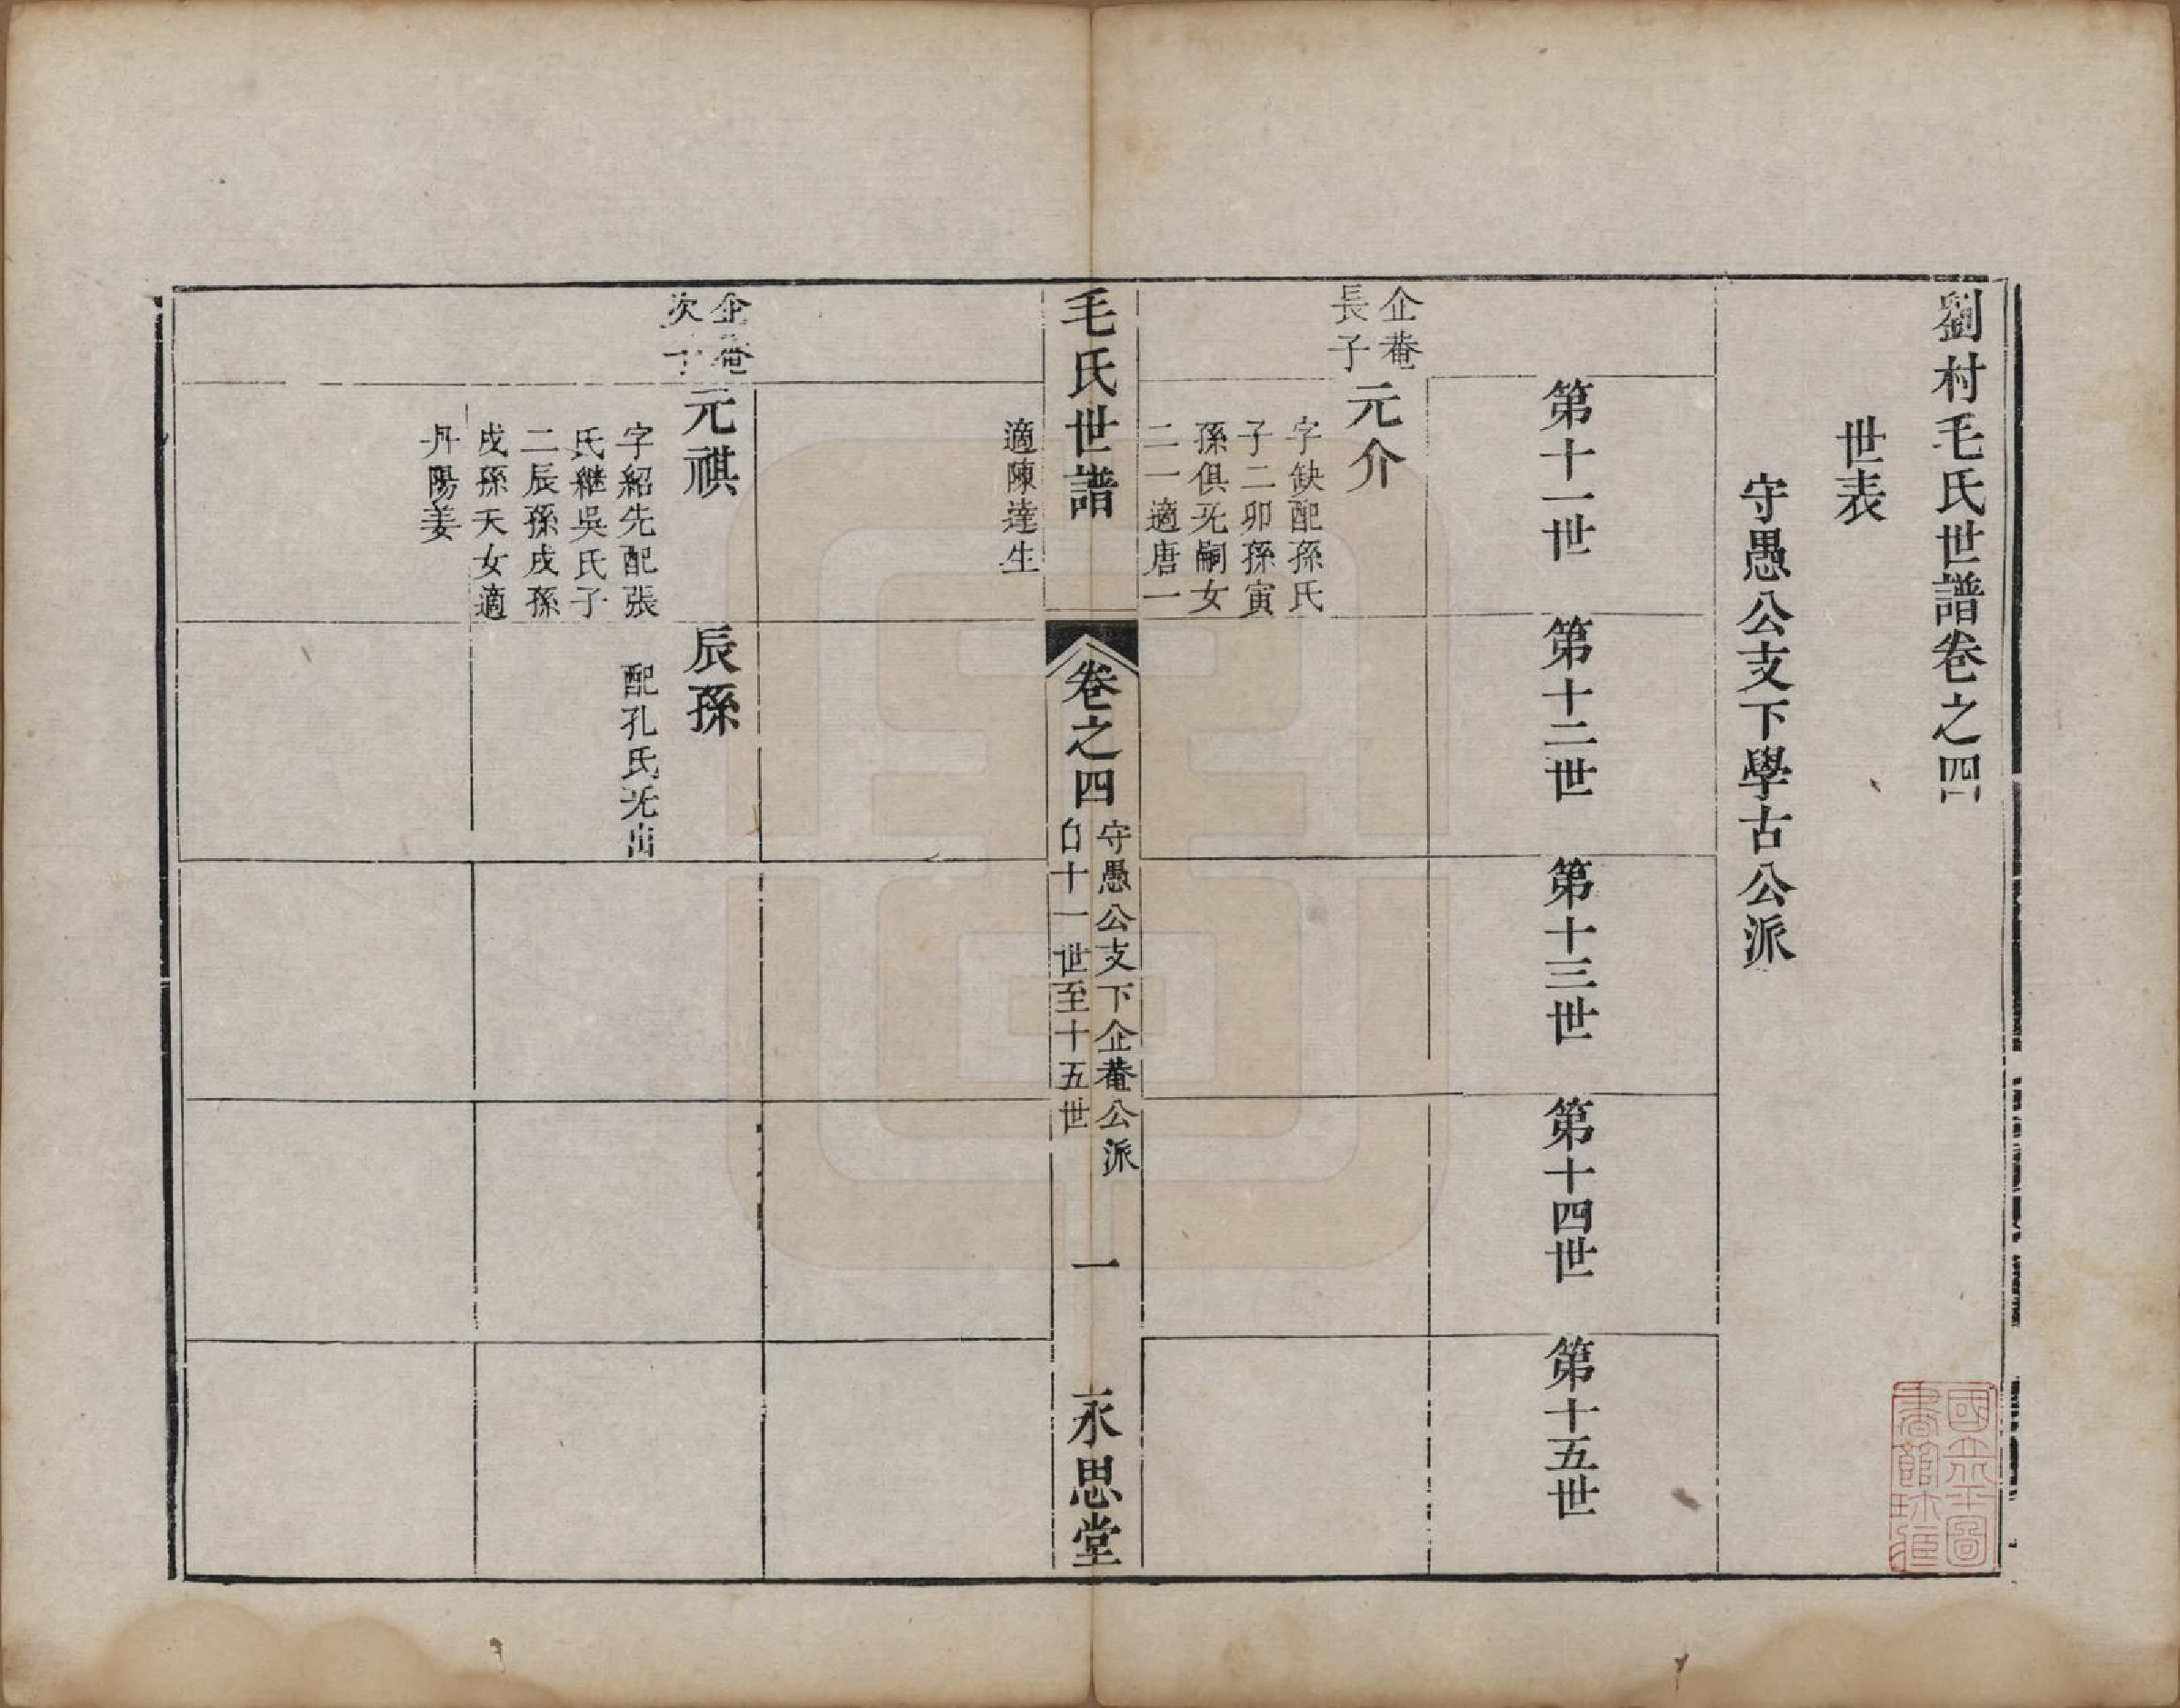 劉村毛氏世譜卷之四
世表
守愚公支下學古公派
第十一世
第十二世
第十三世
第十四世
第十五世
企菴
長子
元介
字缺配孫氏
子二卯孫寅
孫俱无嗣女
二一適唐一
毛氏世譜
卷之四
守愚公支下企菴公派
自十一世至十五世
一
永思堂
適陳達生
企菴
次子
元祺
字紹先配張
氏繼吳氏子
二辰孫戌孫
戌孫夭女適
丹陽姜
辰孫
配孔氏无出
國立北平圖
書館珍藏